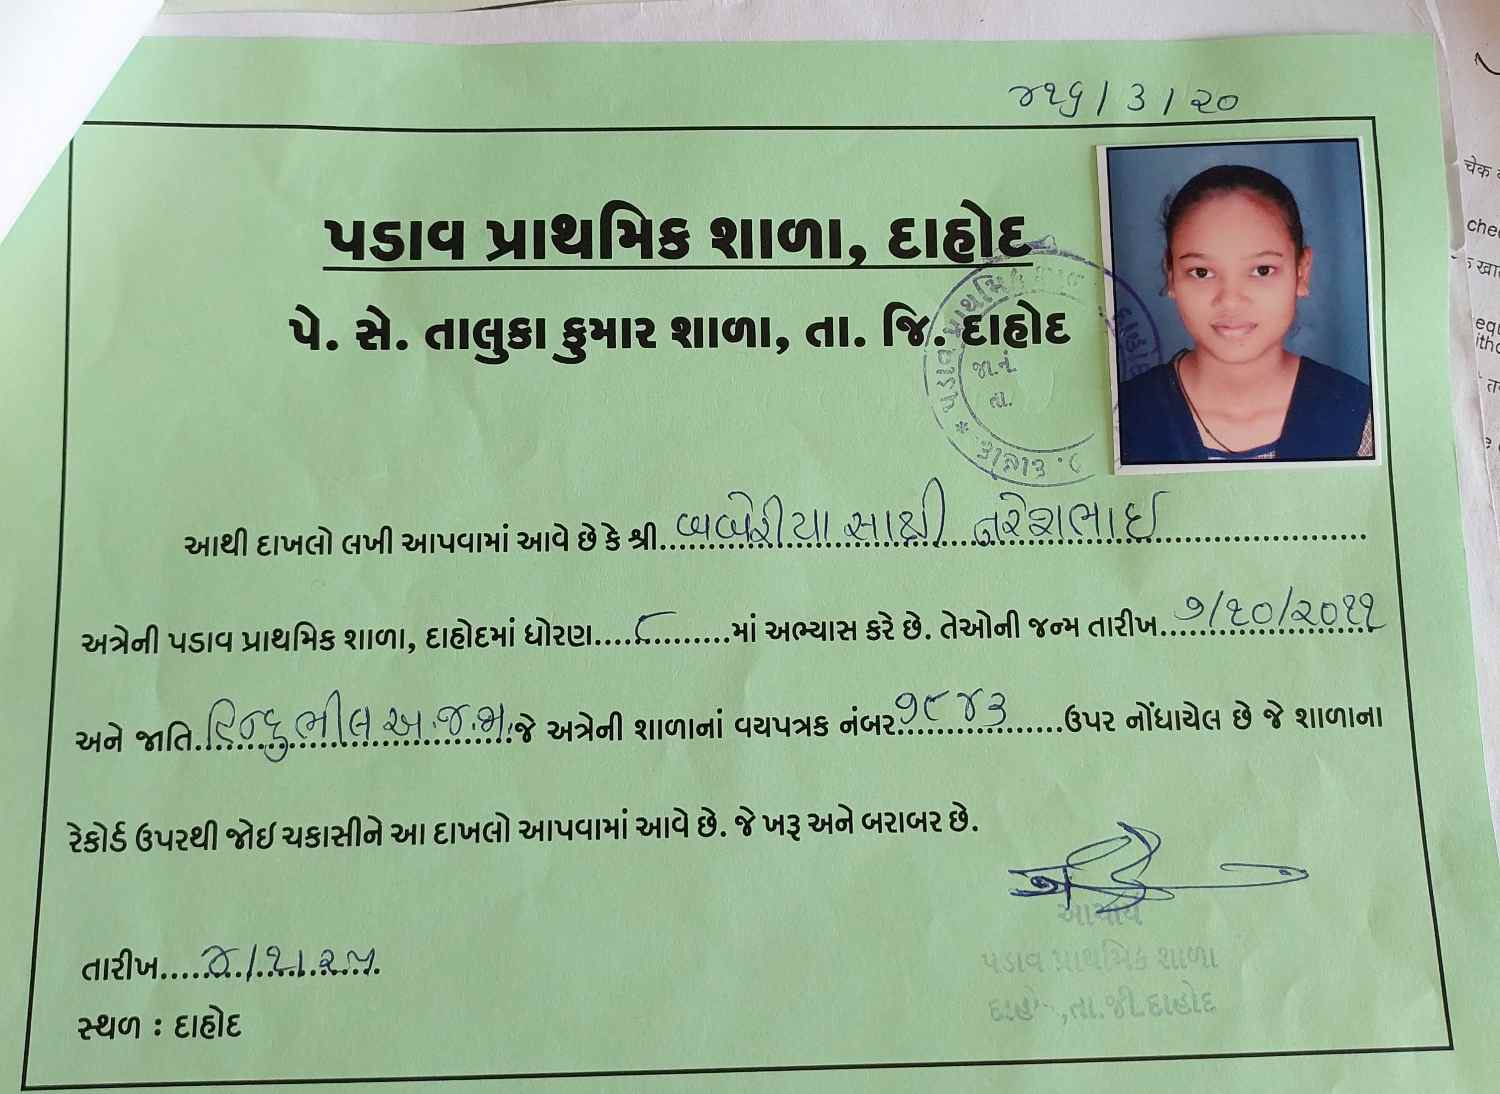 ૪૨૬/3/૨૦
પડાવ પ્રાથમિક શાળા, દાહોદ
પે. સે. તાલુકા કુમાર શાળા, તા. જિ. દાહોદ
જા.નં.
તા.
આથી દાખલો લખી આપવામાં આવે છે કે શ્રી. બબેરીયા સાક્ષી નરેશભાઈ
અત્રેની પડાવ પ્રાથમિક શાળા, દાહોદમાં ધોરણ....૮.........માં અભ્યાસ કરે છે. તેઓની જન્મ તારીખ. ૭/૧૦/૨૦૧૧
અને જાતિ. હિન્દુ ભીલ અ.જ.જા. જે અત્રેની શાળાનાં વયપત્રક નંબર. ૧૯૪૩ ઉપર નોંધાયેલ છે જે શાળાના
રેકોર્ડ ઉપરથી જોઈ ચકાસીને આ દાખલો આપવામાં આવે છે. જે ખરૂ અને બરાબર છે.
આચાર્ય
પડાવ પ્રાથમિક શાળા
તા.જી.દાહોદ
તારીખ..... ૪/૧/૨૫
સ્થળ : દાહોદ
ચેક